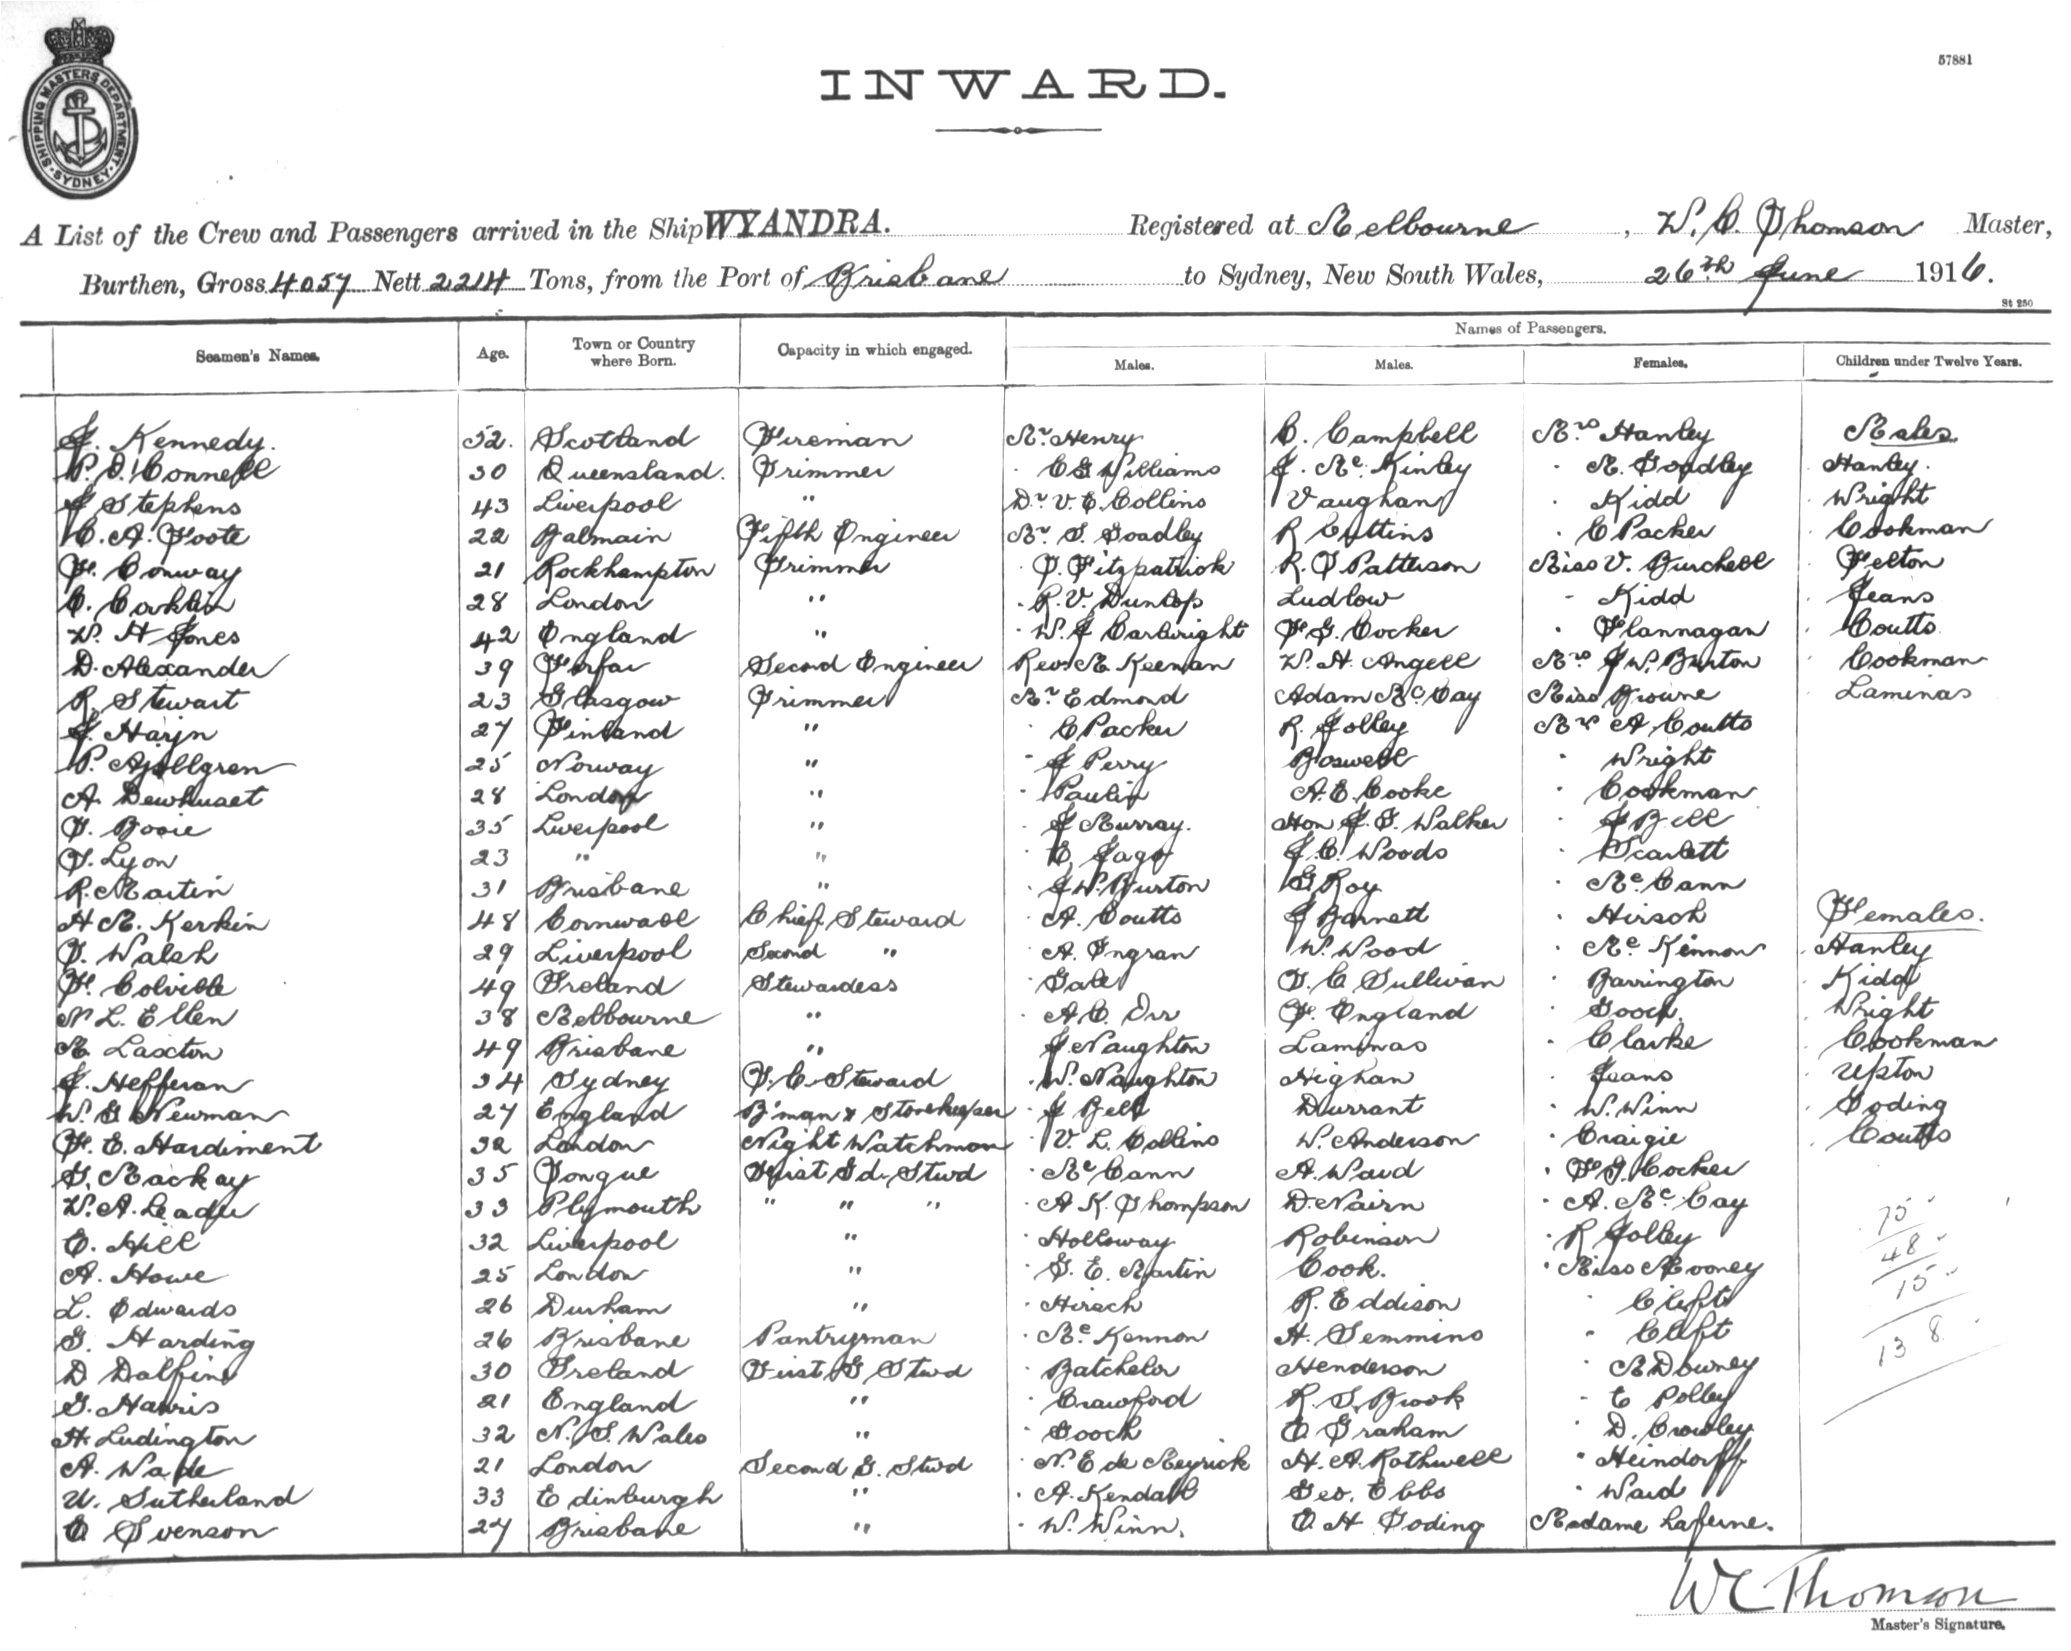 57881
INWARD.
SHIPPING MASTERS DEPARTMENT
SYDNEY
A List of the Crew and Passengers arrived in the Ship WYANDRA. Registered at Melbourne, W. C. Thomson Master,
Burthen, Gross 4057 Nett 2214 Tons, from the Port of Brisbane to Sydney, New South Wales, 26th June 1916.
St 250
Names of Passengers.
Seamen's Names. Age. Town or Country where Born. Capacity in which engaged. Males. Males. Females. Children under Twelve Years.
J. Kennedy. 52. Scotland Fireman Mr Henry C. Campbell Mrs Hanley Males.
P. O'Connell 30 Queensland. Trimmer " C G Williams J. McKinley " M. Goadley Hanley.
J Stephens 43 Liverpool " Dr V. E. Collins Vaughan " Kidd Wright
C. A. Foote 22 Balmain Fifth Engineer Mr. S. Goadley R Cuttins " E Packer Cookman
F. Conway 21 Rockhampton Trimmer " T. Fitzpatrick R. T Patterson Miss V. Burchell Felton
C. Conklin 28 London " " R. V. Dunlop Ludlow " Kidd Jeans
W. H Jones 42 England " " W. J Cartwright F G. Cocker " Flannagan Coutts
D. Alexander 39 Forfar Second Engineer Rev. M. Keenan W. H. Angell Mrs J W. Burton Cookman
R. Stewart 23 Glasgow Trimmer Mr Edmond Adam McCay Miss Browne Laminas
J. Harjn 27 Finland " " C Packer R. Jolley Mrs A Coutts
P. Ajellgren 25 Norway " " J Perry Boswell " Wright
A. Dewhurst 28 London " " Paulin A. E. Cooke " Cookman
T. Booie 35 Liverpool " " J Murray. Hon J. T. Walker " J Bell
T. Lyon 23 " " " E. Jago J. C. Woods " Scarlett
R. Martin 31 Brisbane " " J W. Burton G Roy " McCann
H M. Kerkin 48 Cornwall Chief Steward " A. Coutts J Barnett " Hirsch Females.
T. Walsh 29 Liverpool Second " " A. Ingran W. Wood " McKinnon Hanley
F. Colville 49 Ireland Stewardess " Gale T. C Sullivan " Barrington Kidd
N L. Ellen 38 Melbourne " " A. C. Orr F. England " Gooch. Wright
M. Laxton 49 Brisbane " " J Naughton Laminas " Clarke Cookman
J. Hefferan 34 Sydney T. C. Steward " W. Naughton Highan " Jeans Upton
W. G Newman 27 England B'man & Storekeeper " J Bell Durrant " W. Winn Goding
F. E. Hardiment 32 London Night Watchman " V. L. Collins W. Anderson " Craigie Coutts
G. Mackay 35 Tongue First Gd. Stwd " McCann A. Ward " F G. Cocker
W. A. Leader 33 Plymouth " " " " A K. Thompson D. Nairn " A. McCay
E. Hill 32 Liverpool " " Holloway Robinson " R Jolley
A. Howe 25 London " " G. E. Martin Cook. " Miss Mooney
L. Edwards 26 Durham " " Hirsch R. Eddison " Clift
G. Harding 26 Brisbane Pantryman " McKennon H. Semmins " Clift
D Dalfin 30 Ireland First G Stwd " Batchelor Henderson " M Downey
G. Harris 21 England " " Crawford R. S. Brook " E Polley
H. Ludington 32 N. S. Wales " " Gooch O Graham " D. Crowley
A. Wade 21 London Second G. Stwd " N. E de Meyrick H. A. Rothwell " Heindorff
U. Sutherland 33 Edinburgh " " A. Kendall Geo. Ebbs " Ward
O Svenson 27 Brisbane " " W. Winn. O. H Goding Madame Laferne.
75
48
15
138
W C Thomson
Master's Signature.